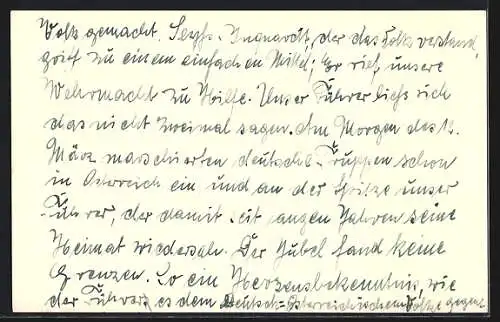 Volk gemacht. Seyhs. Inquardt, der das Volk verstand,
grief zu einem einfachen Mittel; Er rief unsere
Wehrmacht zu Hilfe. Unser Führer ließ sich
das nicht zweimal sagen. Am Morgen des 12.
März marschierten deutsche Truppen schon
in Österreich ein und an der Spitze unser
Führer, der damit seit langen Jahren seine
Heimat wiedersah. Der Jubel fand keine
Grenzen. So ein Herzensbekenntnis, wie
der Führer es dem Deutsch-Österreichischem Volke gegenü